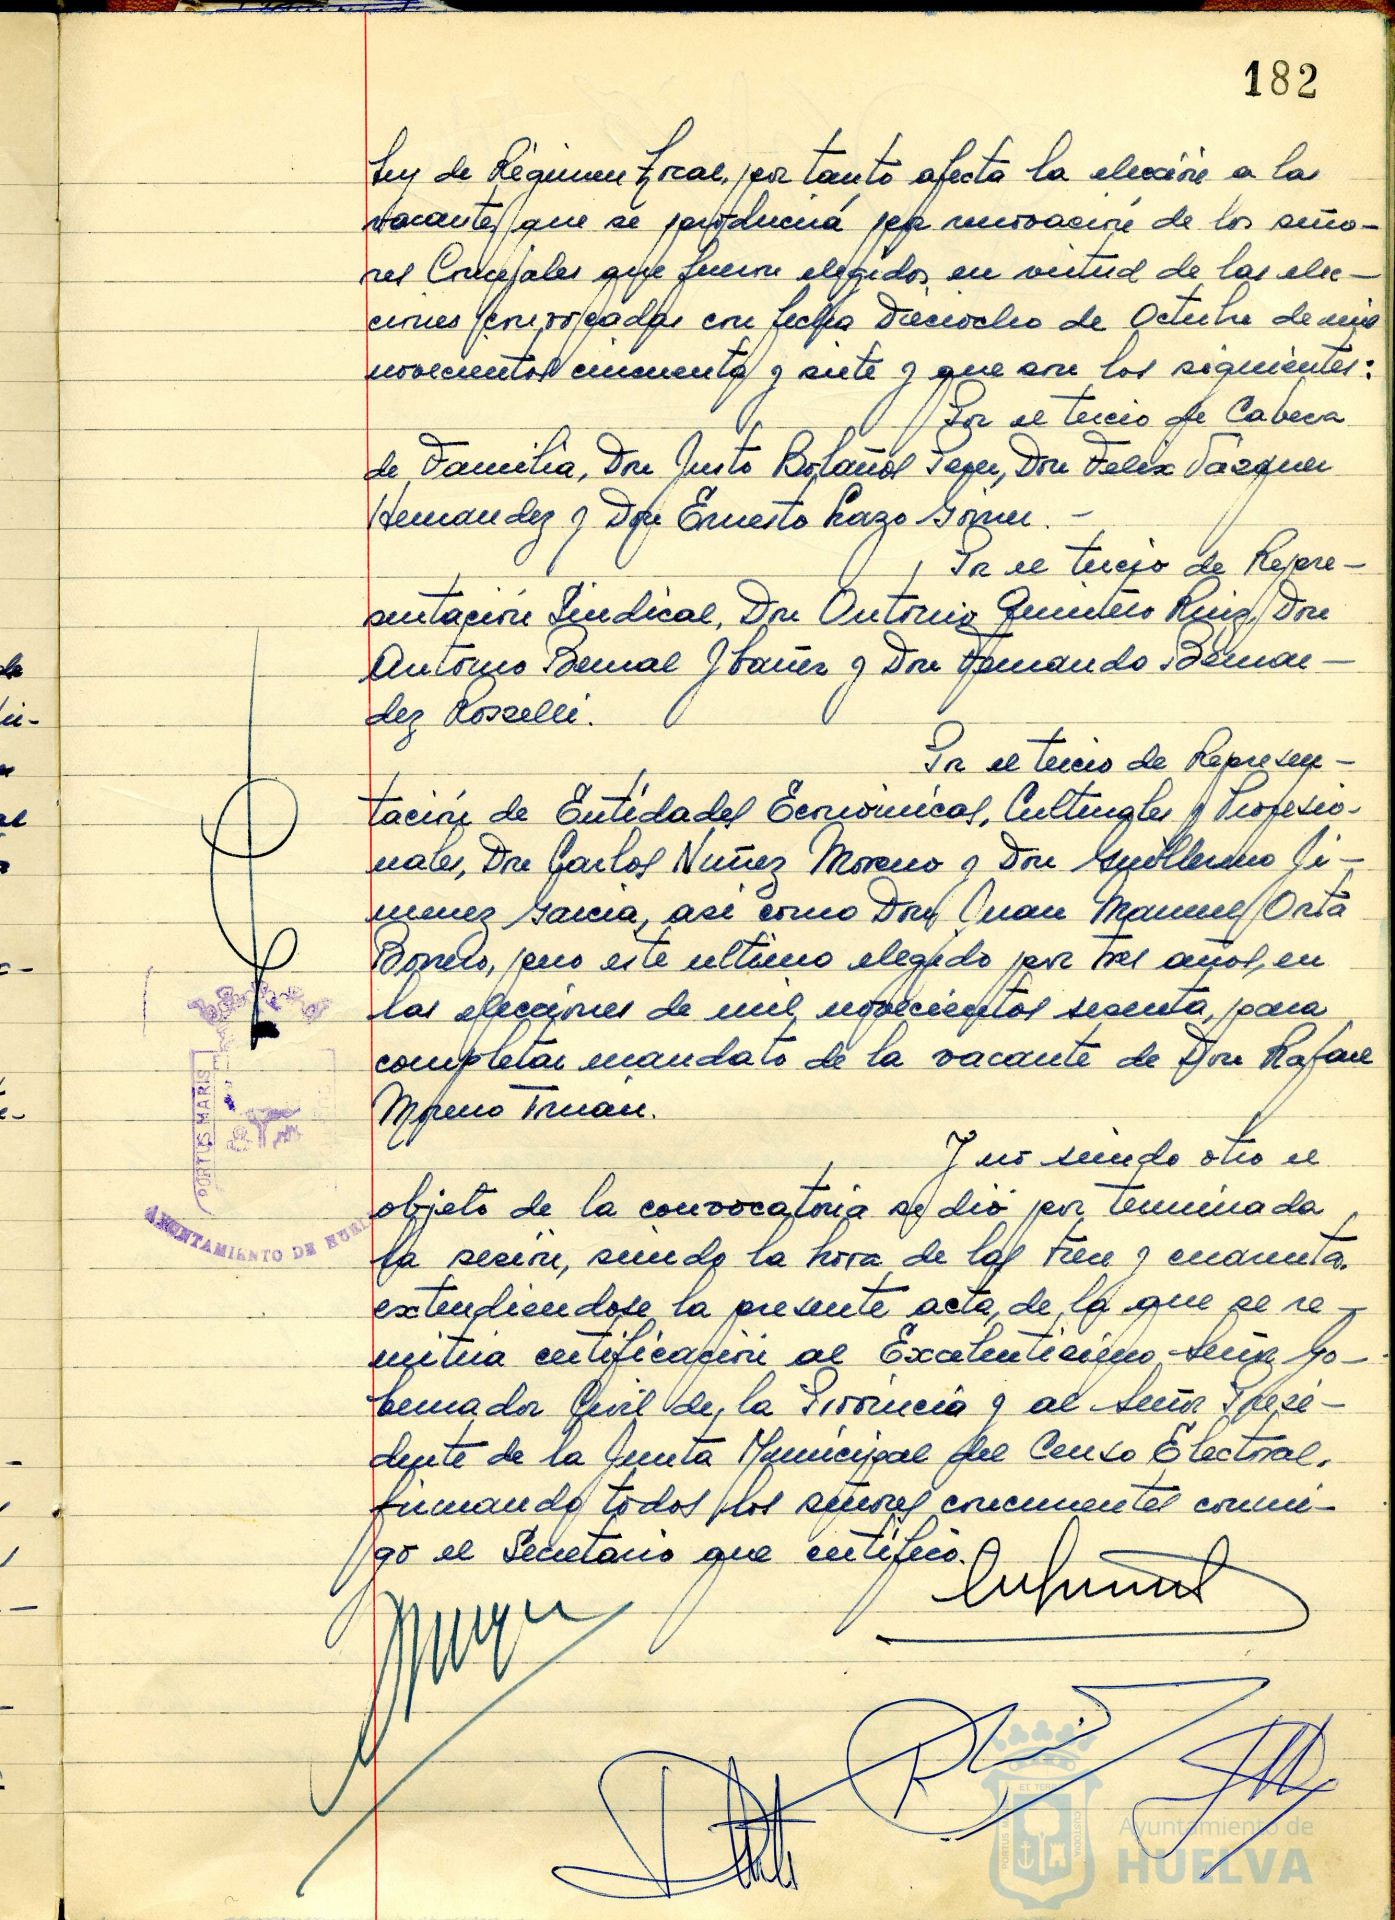 182
Ley de Régimen Local, por tanto afecta la elección a las
vacantes que se producirá por renovación de los seño-
res Concejales que fueron elegidos en virtud de las elec-
ciones convocadas con fecha Dieciocho de Octubre de mil
novecientos cincuenta y siete y que son los siguientes:
Por el tercio de Cabeza
de Familia, Don Justo Bolaños Perez, Don Felix Vazquez
Hernandez y Don Ernesto Lazo Gomez. -
Por el tercio de Repre-
sentación Sindical, Don Antonio Quintero Ruiz, Don
Antonio Bernal Ybañez y Don Fernando Bernan-
dez Rosselli.
Por el tercio de Represen-
tación de Entidades Económicas, Culturales y Profesio-
nales, Don Carlos Nuñez Moreno y Don Guillermo Ji-
menez Garcia, asi como Don Juan Manuel Orta
Borrero, pero este ultimo elegido por tres años, en
las elecciones de mil novecientos sesenta, para
completar mandato de la vacante de Don Rafael
Moreno Truan.
Y no siendo otro el
objeto de la convocatoria se dió por terminada
la sesión, siendo la hora de las trece y cuarenta,
extendiendose la presente acta, de la que se re-
mitira certificación al Excelentisimo Señor Go-
bernador Civil de la Provincia y al Señor Presi-
dente de la Junta Municipal del Censo Electoral,
firmando todos los señores concurrentes conmi-
go el Secretario que certifico.
PORTUS MARIS
AYUNTAMIENTO DE HUEL
Ayuntamiento de
HUELVA